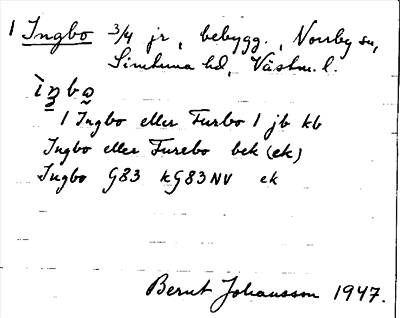 1 Ingbo 3/4 jr, bebygg., Norrby sn,
Simtuna hd, Västm. l.
1 Ingbo eller Furbo 1 jb kb
Ingbo eller Furebo bek (ek)
Ingbo G83 kG83NV ek
Bernt Johansson 1947.